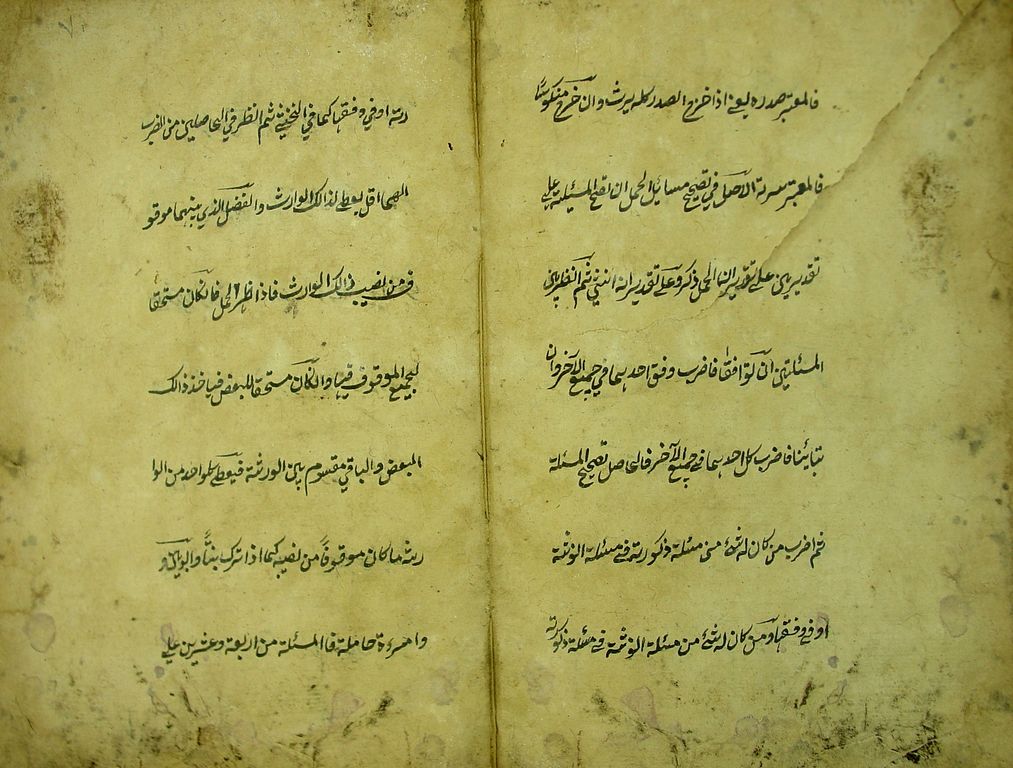 فالمعتبر صدره يعنے اذا خرج الصدر كله يرث وان خرج منكوسًا
فالمعتبر سرته الاصل في تصحيح مسائل الحمل ان تصحح المسئلة علے
تقديرين علے تقدير ان الحمل ذكر وعلے تقدير انه انثي ثم انظر بين
المسئلتين ان توافقا فاضرب وفق احدهما في جميع الآخر وان
تباينا فاضرب كل احدهما في جميع الآخر فالحاصل تصحيح المسئلة
ثم اضرب من كان له شئ من مسئلة ذكورته في مسئلة انوثته
او في وفقها ومن كان له شئ من مسئلة انوثته في مسئلة ذكو
رته او في وفقها كما في الخنثے ثم انظر في الحاصلين من الضرب
ايهما اقل يعطے لذالك الوارث والفضل الذي بينهما موقو
ف من نصيب ذالك الوارث فاذا ظهر الحمل فان كان مستحقا
لجميع الموقوف فبها وان كان مستحقا للبعض فياخذ ذالك
البعض والباقي مقسوم بين الورثة فيعطے لكل واحد من الو
رثة ما كان موقوفًا من نصيبه كما اذا ترك بنتًا وابوين و
وامرءة حاملة فالمسئلة من اربعة وعشرين علے